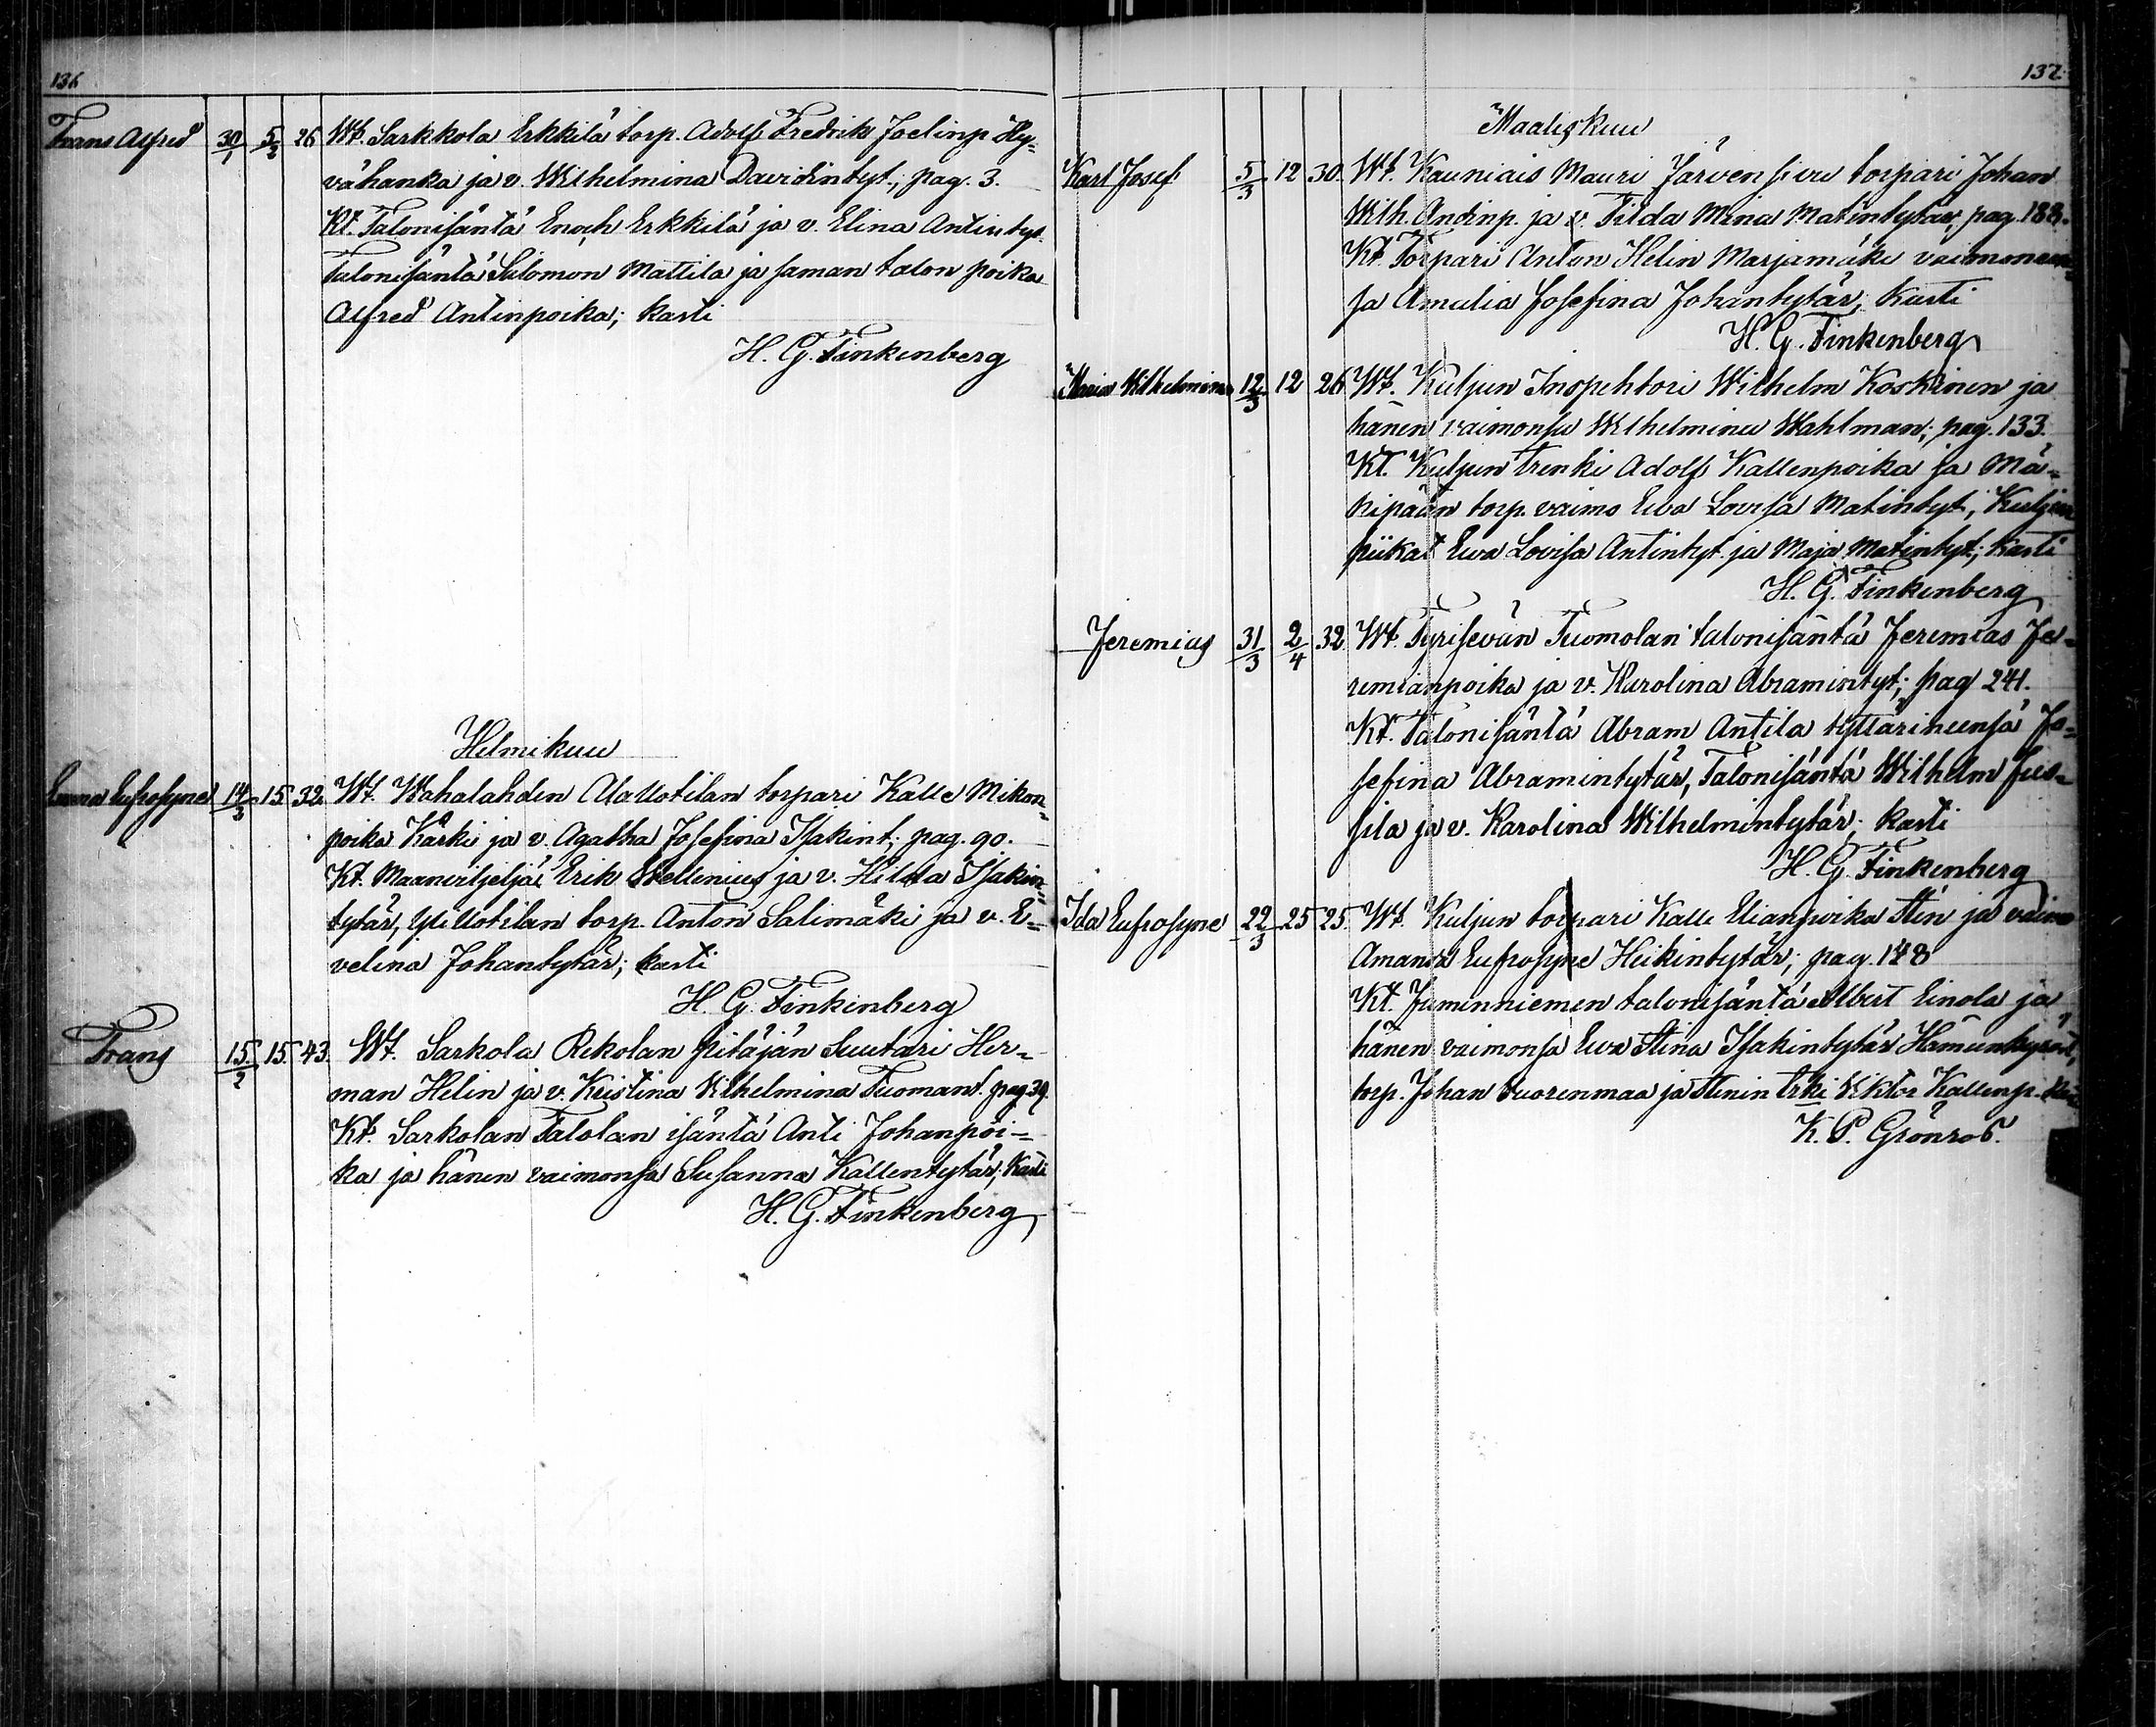 136
Frans Alfred 30/1 5/2 26 Wt. Sarkkola Erkkilä torp. Adolf Fredrik Joelinp. Hy-
vähanka ja v. Wilhelmina Davidintyt.; pag. 3.
Kt. Talonisäntä Enoch Erkkilä ja v. Elina Antintyt.
Talonisäntä Salomon Mattila ja saman talon poika
Alfred Antinpoika; kasti
H. G. Finkenberg
Helmikuu
Emma Eufrosyne 14/2 15 32. Wt. Wahalahden AlaUotilan torpari Kalle Mikon-
poika Kärki ja v. Agatha Josefina Isakint; pag. 90.
Kt. Maanviljeljä Erik Wellenius ja v. Hilda Isakin-
tytär, YliUotilan torp. Anton Salimäki ja v. E-
velina Johantytär; kasti
H. G. Finkenberg
Frans 15/2 15. 43. Wt. Sarkola Rekolan pitäjän Suutari Her-
man Helin ja v. Kristiina Wilhelmina Tuomant. pag. 39.
Kt. Sarkolan Talolan isäntä Anti Johanpoi-
ka ja hänen vaimonsa Susanna Kallentytär; kasti
H. G. Finkenberg
137.
Maaliskuu
Karl Josef 5/3 12 30. Wt. Kauniais Mauri Järvensivu torpari Johan
Wilh. Andinp. ja v. Tilda Mina Matintytär, pag. 188.
Kt. Torpari Anton Helin Marjamäki vaimoneen-
sa Amalia Josefina Johantytär; Kasti
H. G. Finkenberg
Maria Wilhelmina 12/3 12 26 Wt. Kuljun Inspehtori Wilhelm Koskinen ja
hänen vaimonsa Wilhelmina Wahlman; pag. 133.
Kt. Kuljun trenki Adolf Kallenpoika ja Mä-
kipään torp. vaimo Eva Lovisa Matintyt, Kuljun
piikat Eva Lovisa Antintyt. ja Maja Matintyt; kasti
H. G. Finkenberg
Jeremias 31/3 2/4 32. Wt. Tyrisevän Tuomolan talonisäntä Jeremias Je-
remianpoika ja v. Karolina Abramintyt; pag 241.
Kt. Talonisäntä Abram Antila tyttärineensä Jo-
sefina Abramintytär, Talonisäntä Wilhelm Jus-
sila ja v. Karolina Wilhelmintytär; kasti
H. G. Finkenberg
Ida Eufrosyne 22/3 25 25. Wt. Kuljun torpari Kalle Elianpoika Sten ja vaimo
Amanda Eufrosyne Heikintytär; pag. 148
Kt. Juminniemen talonisäntä Albert Einola ja
hänen vaimonsa Eva Stina Isakintytär Hämeenkyröst,
torp. Johan Vuorenmaa ja Stenin trki Viktor Kallenp.
K. P. Grönros.